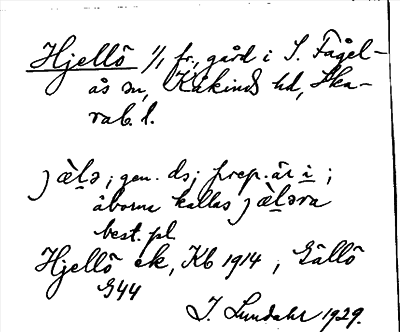 Hjellö 1/1 fr., gård i S. Fågel-
ås sn, Kåkinds hd, Ska-
rab. l.
jὰ̀lə; gen. ds; prep. är i;
åborna kallas jὰ̀ləra
best. pl.
Hjellö ek, Kb 1914, Gällö
G44
J. Lundahl 1929.